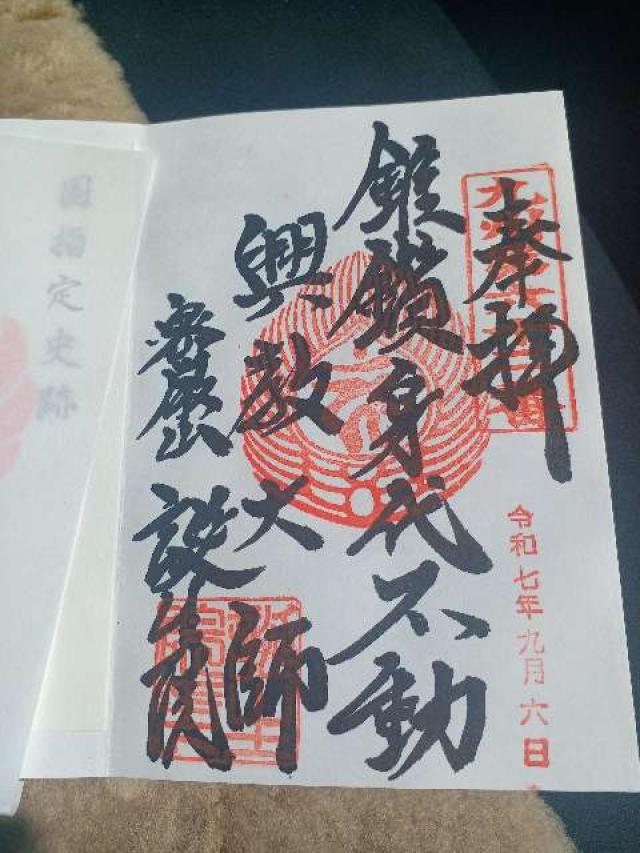 奉拝
令和七年九月六日
錐鑽身代不動
興教大師
誕生院
国指定史跡